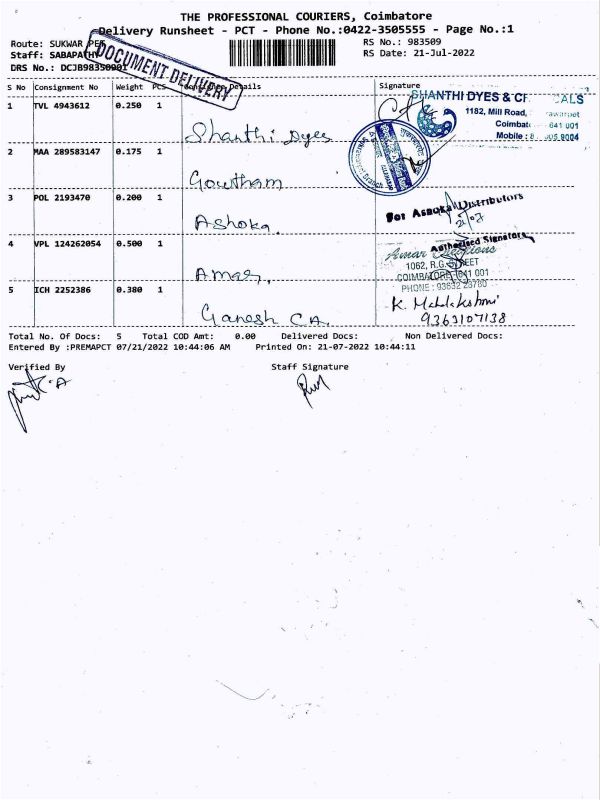 THE PROFESSIONAL COURIERS, Coimbatore
Delivery Runsheet - PCT - Phone No.:0422-3505555 - Page No.:1
Route: SUKWAR PET
RS No.: 983509
Staff: SABAPATHY
RS Date: 21-Jul-2022
DRS No.: DCJB98350901
DOCUMENT DELIVERY
S No Consignment No Weight PCS Consignee Details Signature
1 TVL 4943612 0.250 1
Shanthi Dyes
SHANTHI DYES &
1182, Mill Road,
641 001
Mobile :
2 MAA 289583147 0.175 1
Goutham
3 POL 2193470 0.200 1
Ashoka.
For Ashoka Distributors
21/07
Authorised Signatory
4 VPL 124262054 0.500 1
Amar.
Amar
1062, R.G. STREET
COIMBATORE 641 001
PHONE : 93632
5 ICH 2252386 0.380 1
Ganesh CA.
K. Mahalakshmi
9363107138
Total No. Of Docs: 5 Total COD Amt: 0.00 Delivered Docs: Non Delivered Docs:
Entered By :PREMAPCT 07/21/2022 10:44:06 AM Printed On: 21-07-2022 10:44:11
Verified By Staff Signature